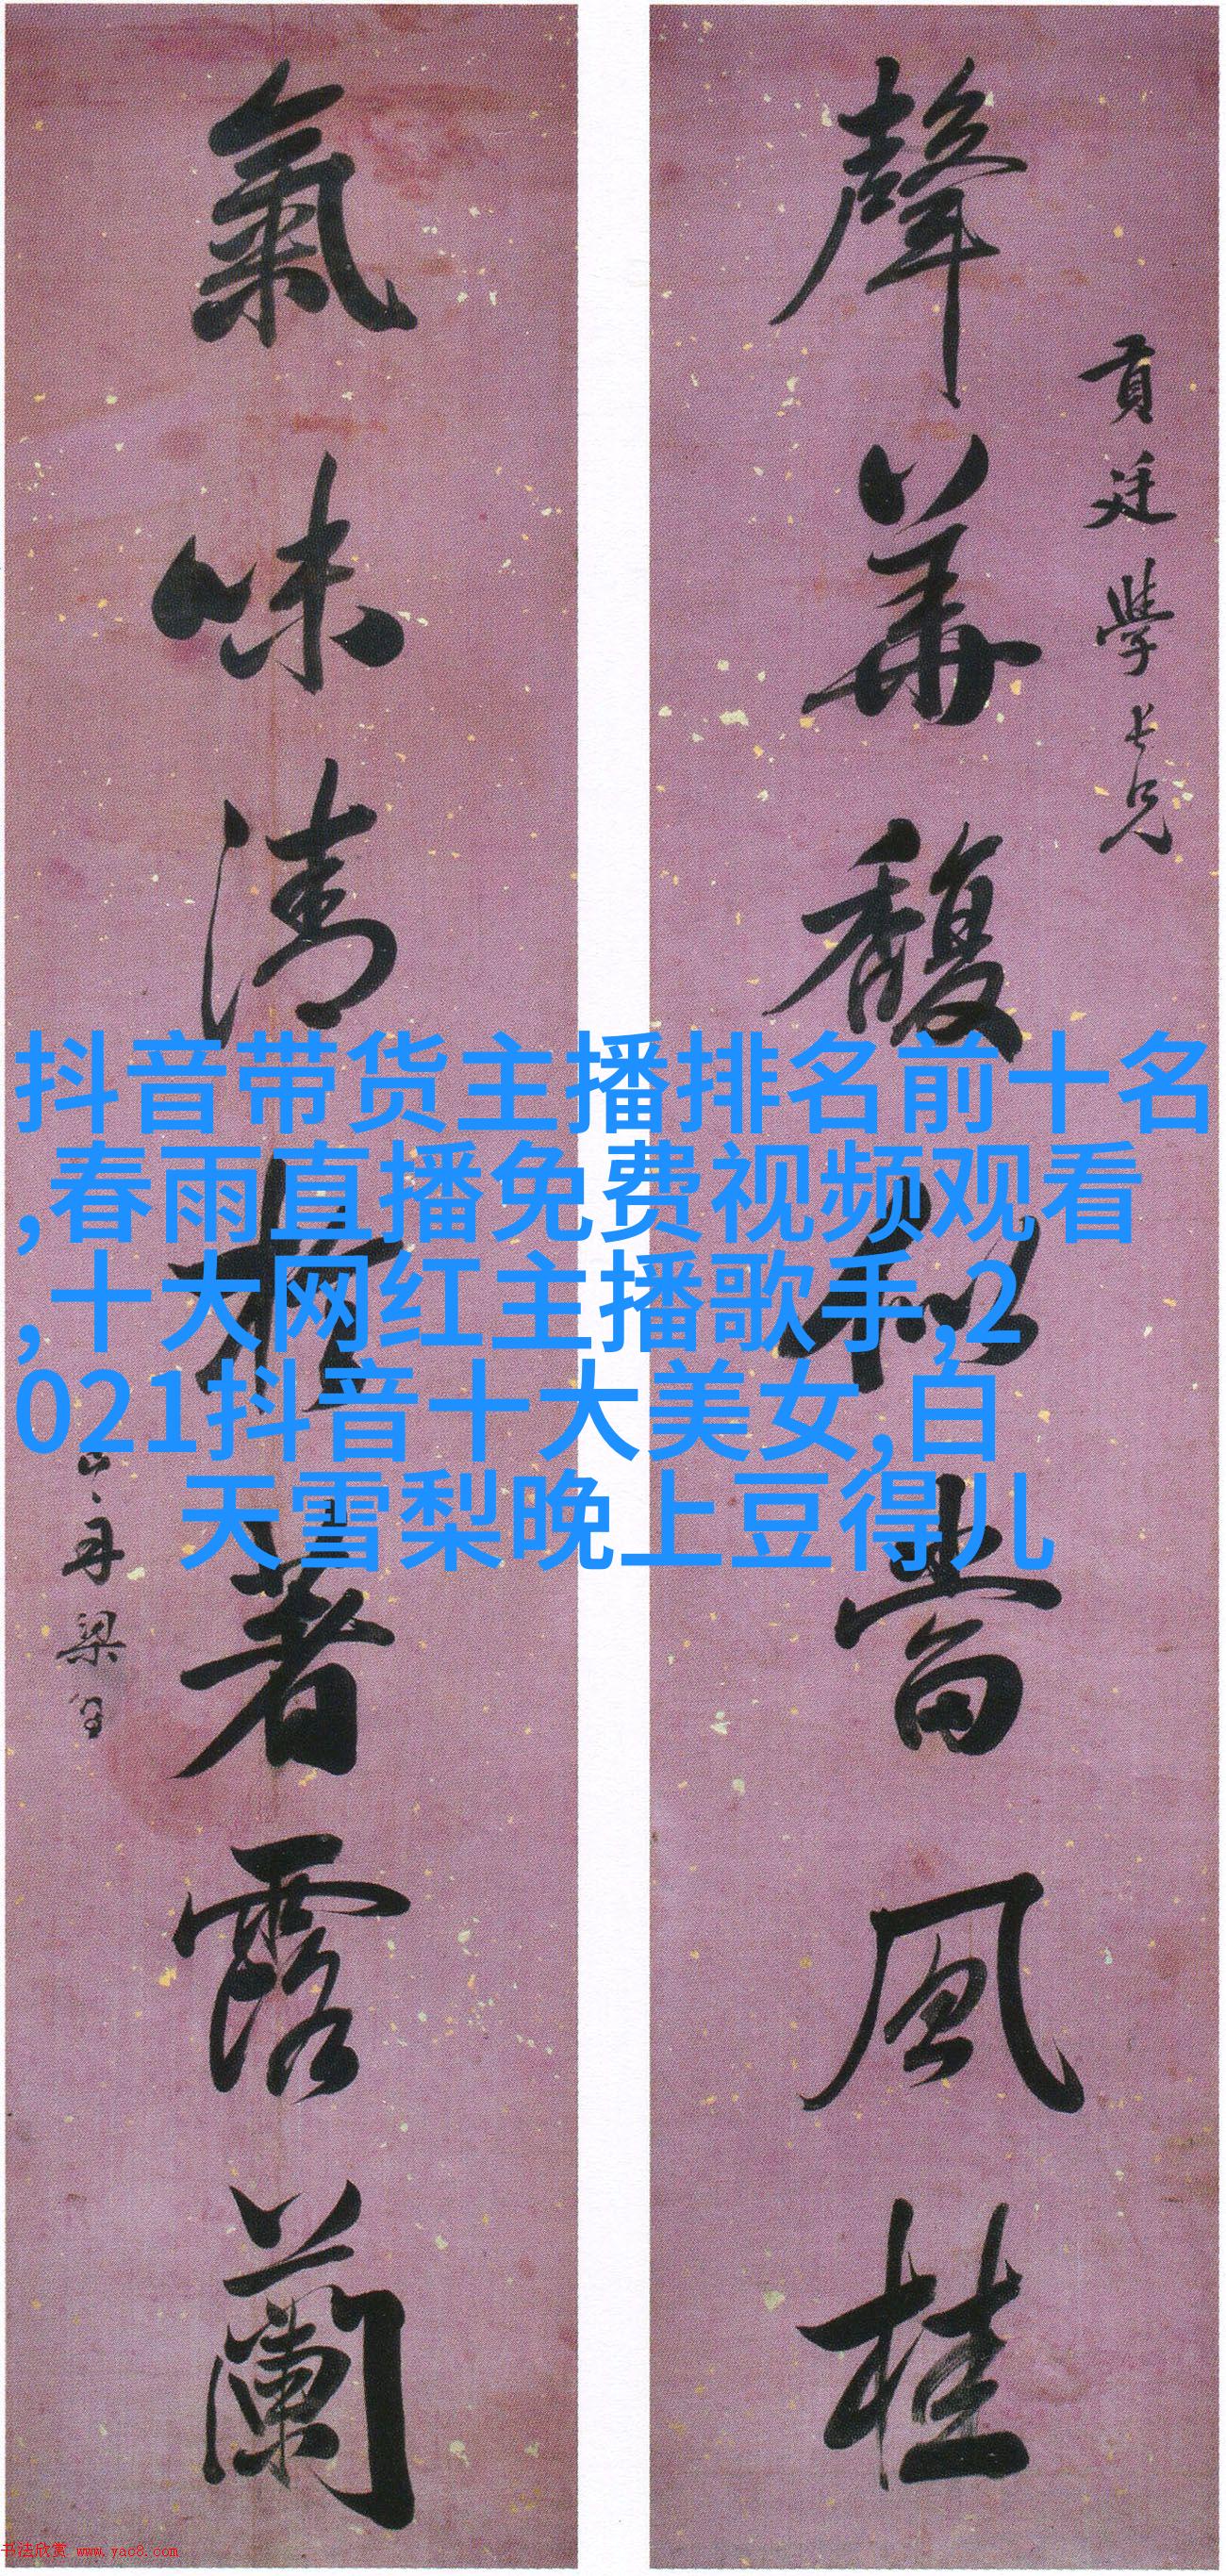 聲華馥秘當風桂
貢廷學長兄
氣味清於著露蘭
山舟梁同書
抖音带货主播排名前十名
,春雨直播免费视频观看
,十大网红主播歌手,2
021抖音十大美女,白
天雪梨晚上豆得儿
书法欣赏 www.yac8.com